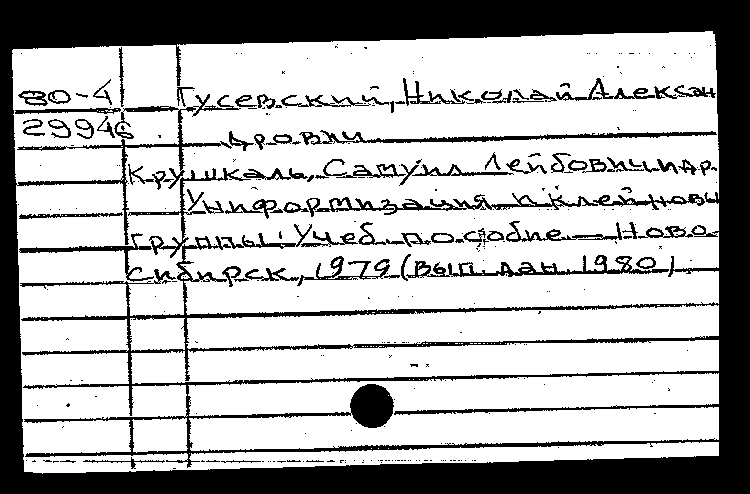 80-4 Гусевский, Николай Алексан
29946 дрович
Крушкаль, Самуил Лейбович и др.
Униформизация и клейновы
группы: Учеб. пособие — Ново-
сибирск, 1979 (вып. дан. 1980)